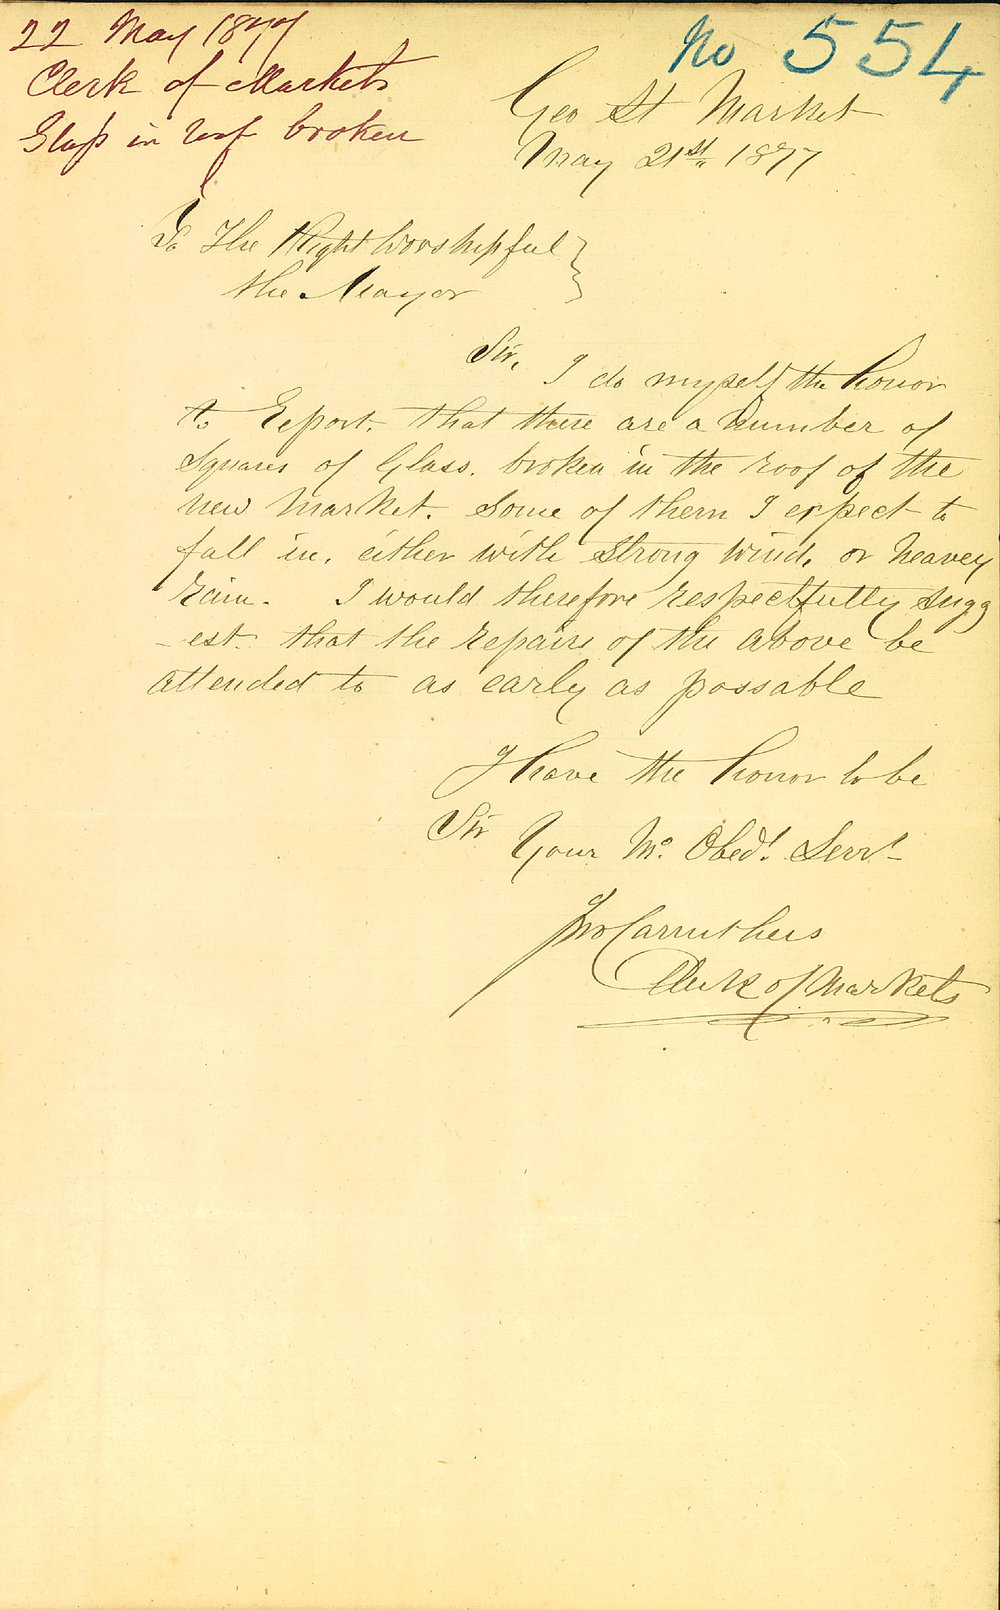 22 May 1877
Clerk of Markets
Glass in roof broken
No 554
Geo St Market
May 21st 1877
To The Right Worshipful
the Mayor
Sir,
I do myself the honor
to Report. that there are a Number of
Squares of Glass. broken in the roof of the
new Market. Some of them I expect to
fall in. either with Strong Wind, or heavey
rain. I would therefore respectfully Sugg
-est that the repairs of the above be
attended to as early as possable
I have the honor to be
Sir
Your Mo. Obedt. Servt
Jno Carruthers
Clerk of Markets